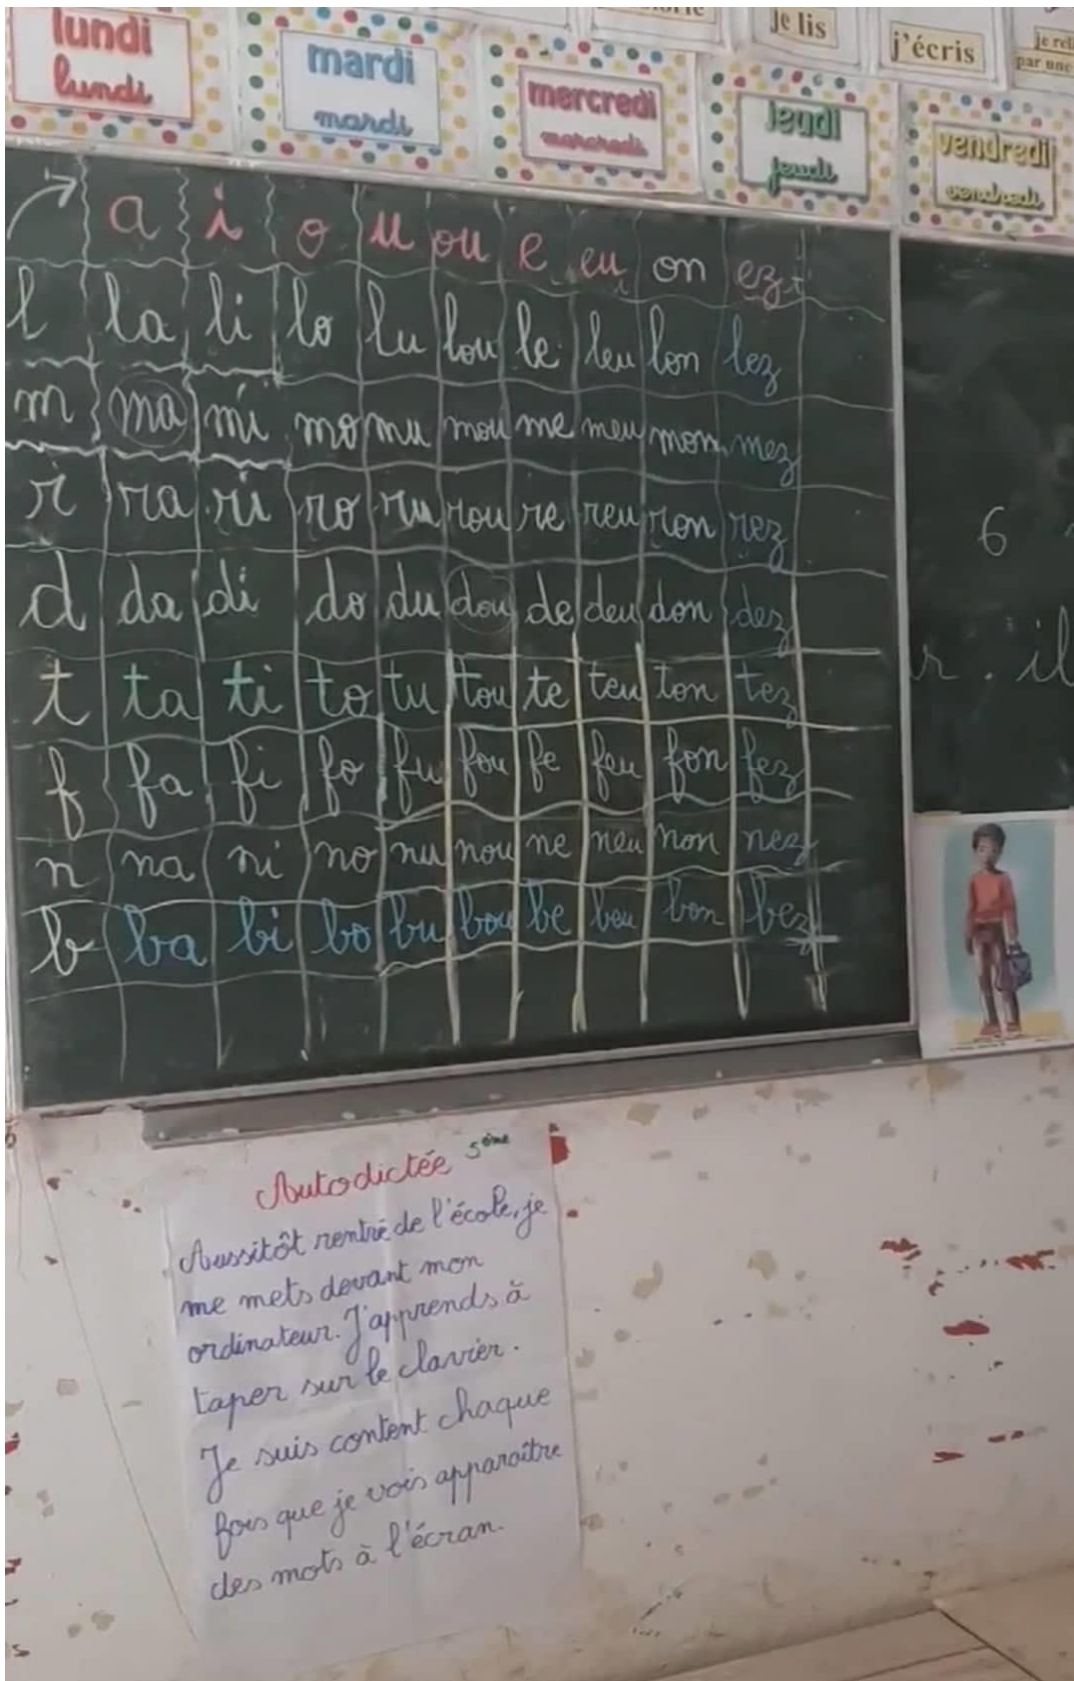 je lis
j'écris
par une
lundi
lundi
mardi
mardi
mercredi
mercredi
jeudi
jeudi
vendredi
vendredi
a i o u ou e eu on ez
l la li lo lu lou le leu lon lez
m ma mi mo mu mou me meu mon mez
r ra ri ro ru rou re reu ron rez
d da di do du dou de deu don dez
t ta ti to tu tou te teu ton tez
f fa fi fo fu fou fe feu fon fez
n na ni no nu nou ne neu non nez
b ba bi bo bu bou be beu bon bez
6
r. il
Autodictée 5ème
Aussitôt rentré de l'école, je
me mets devant mon
ordinateur. J'apprends à
taper sur le clavier.
Je suis content chaque
fois que je vois apparaître
des mots à l'écran.